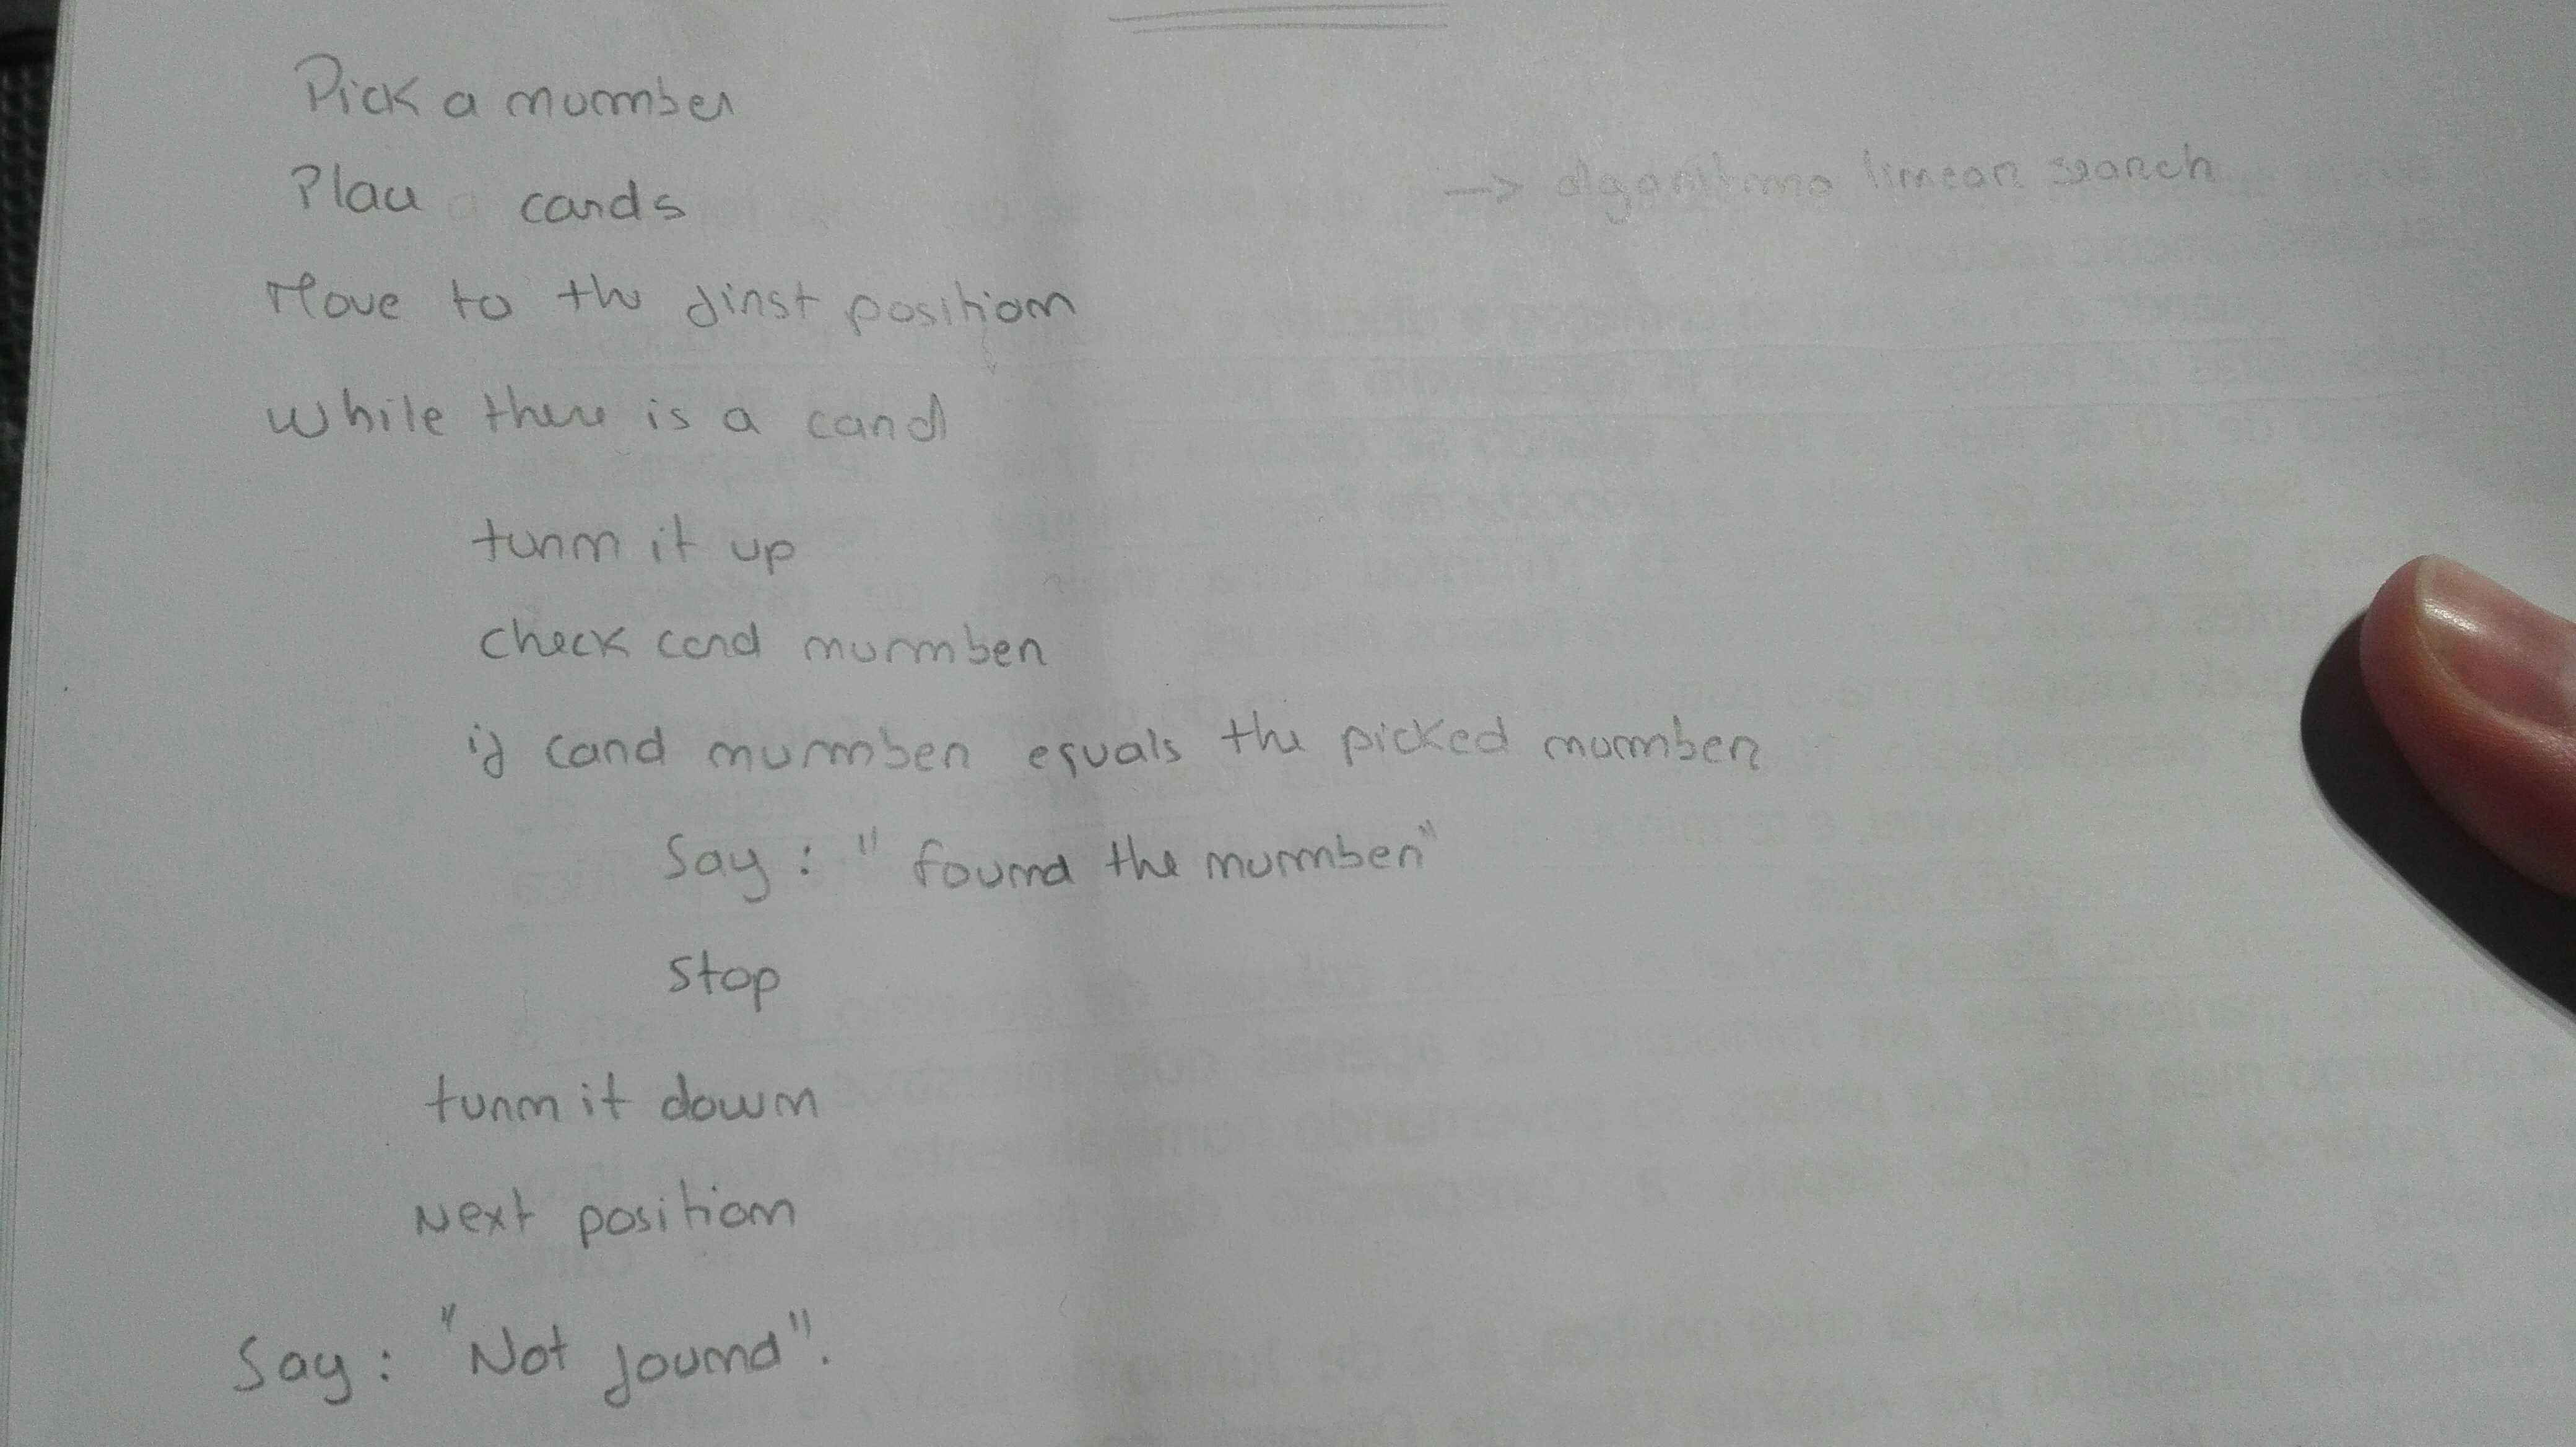 Pick a number
Play cards
→ algoritmo linear search
Move to the first position
While there is a card
turn it up
check card number
if card number equals the picked number
Say : " found the number"
Stop
turn it down
Next position
Say : "Not found".